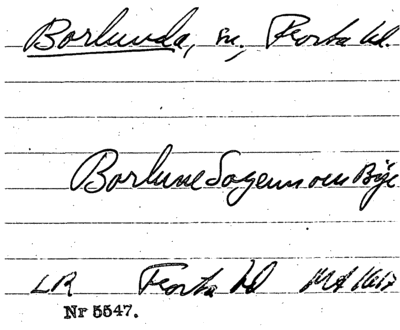 Borlunda, sn, Frosta hd.
Borlune Sogenn oeu Bÿe
LR Frosta hd MA 1617
Nr 5547.